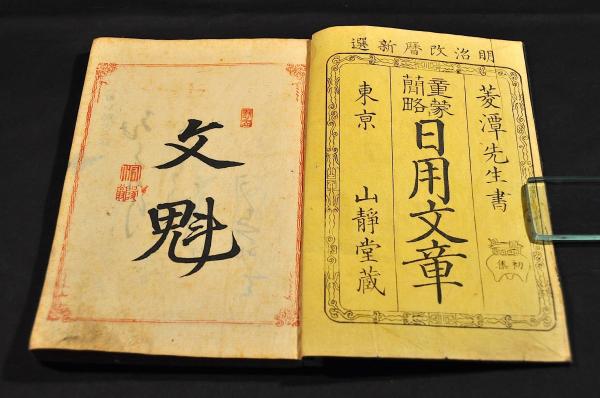 明治改暦新選
菱潭先生書
童蒙
簡略
日用文章
東亰 山靜堂蔵
初集
文魁